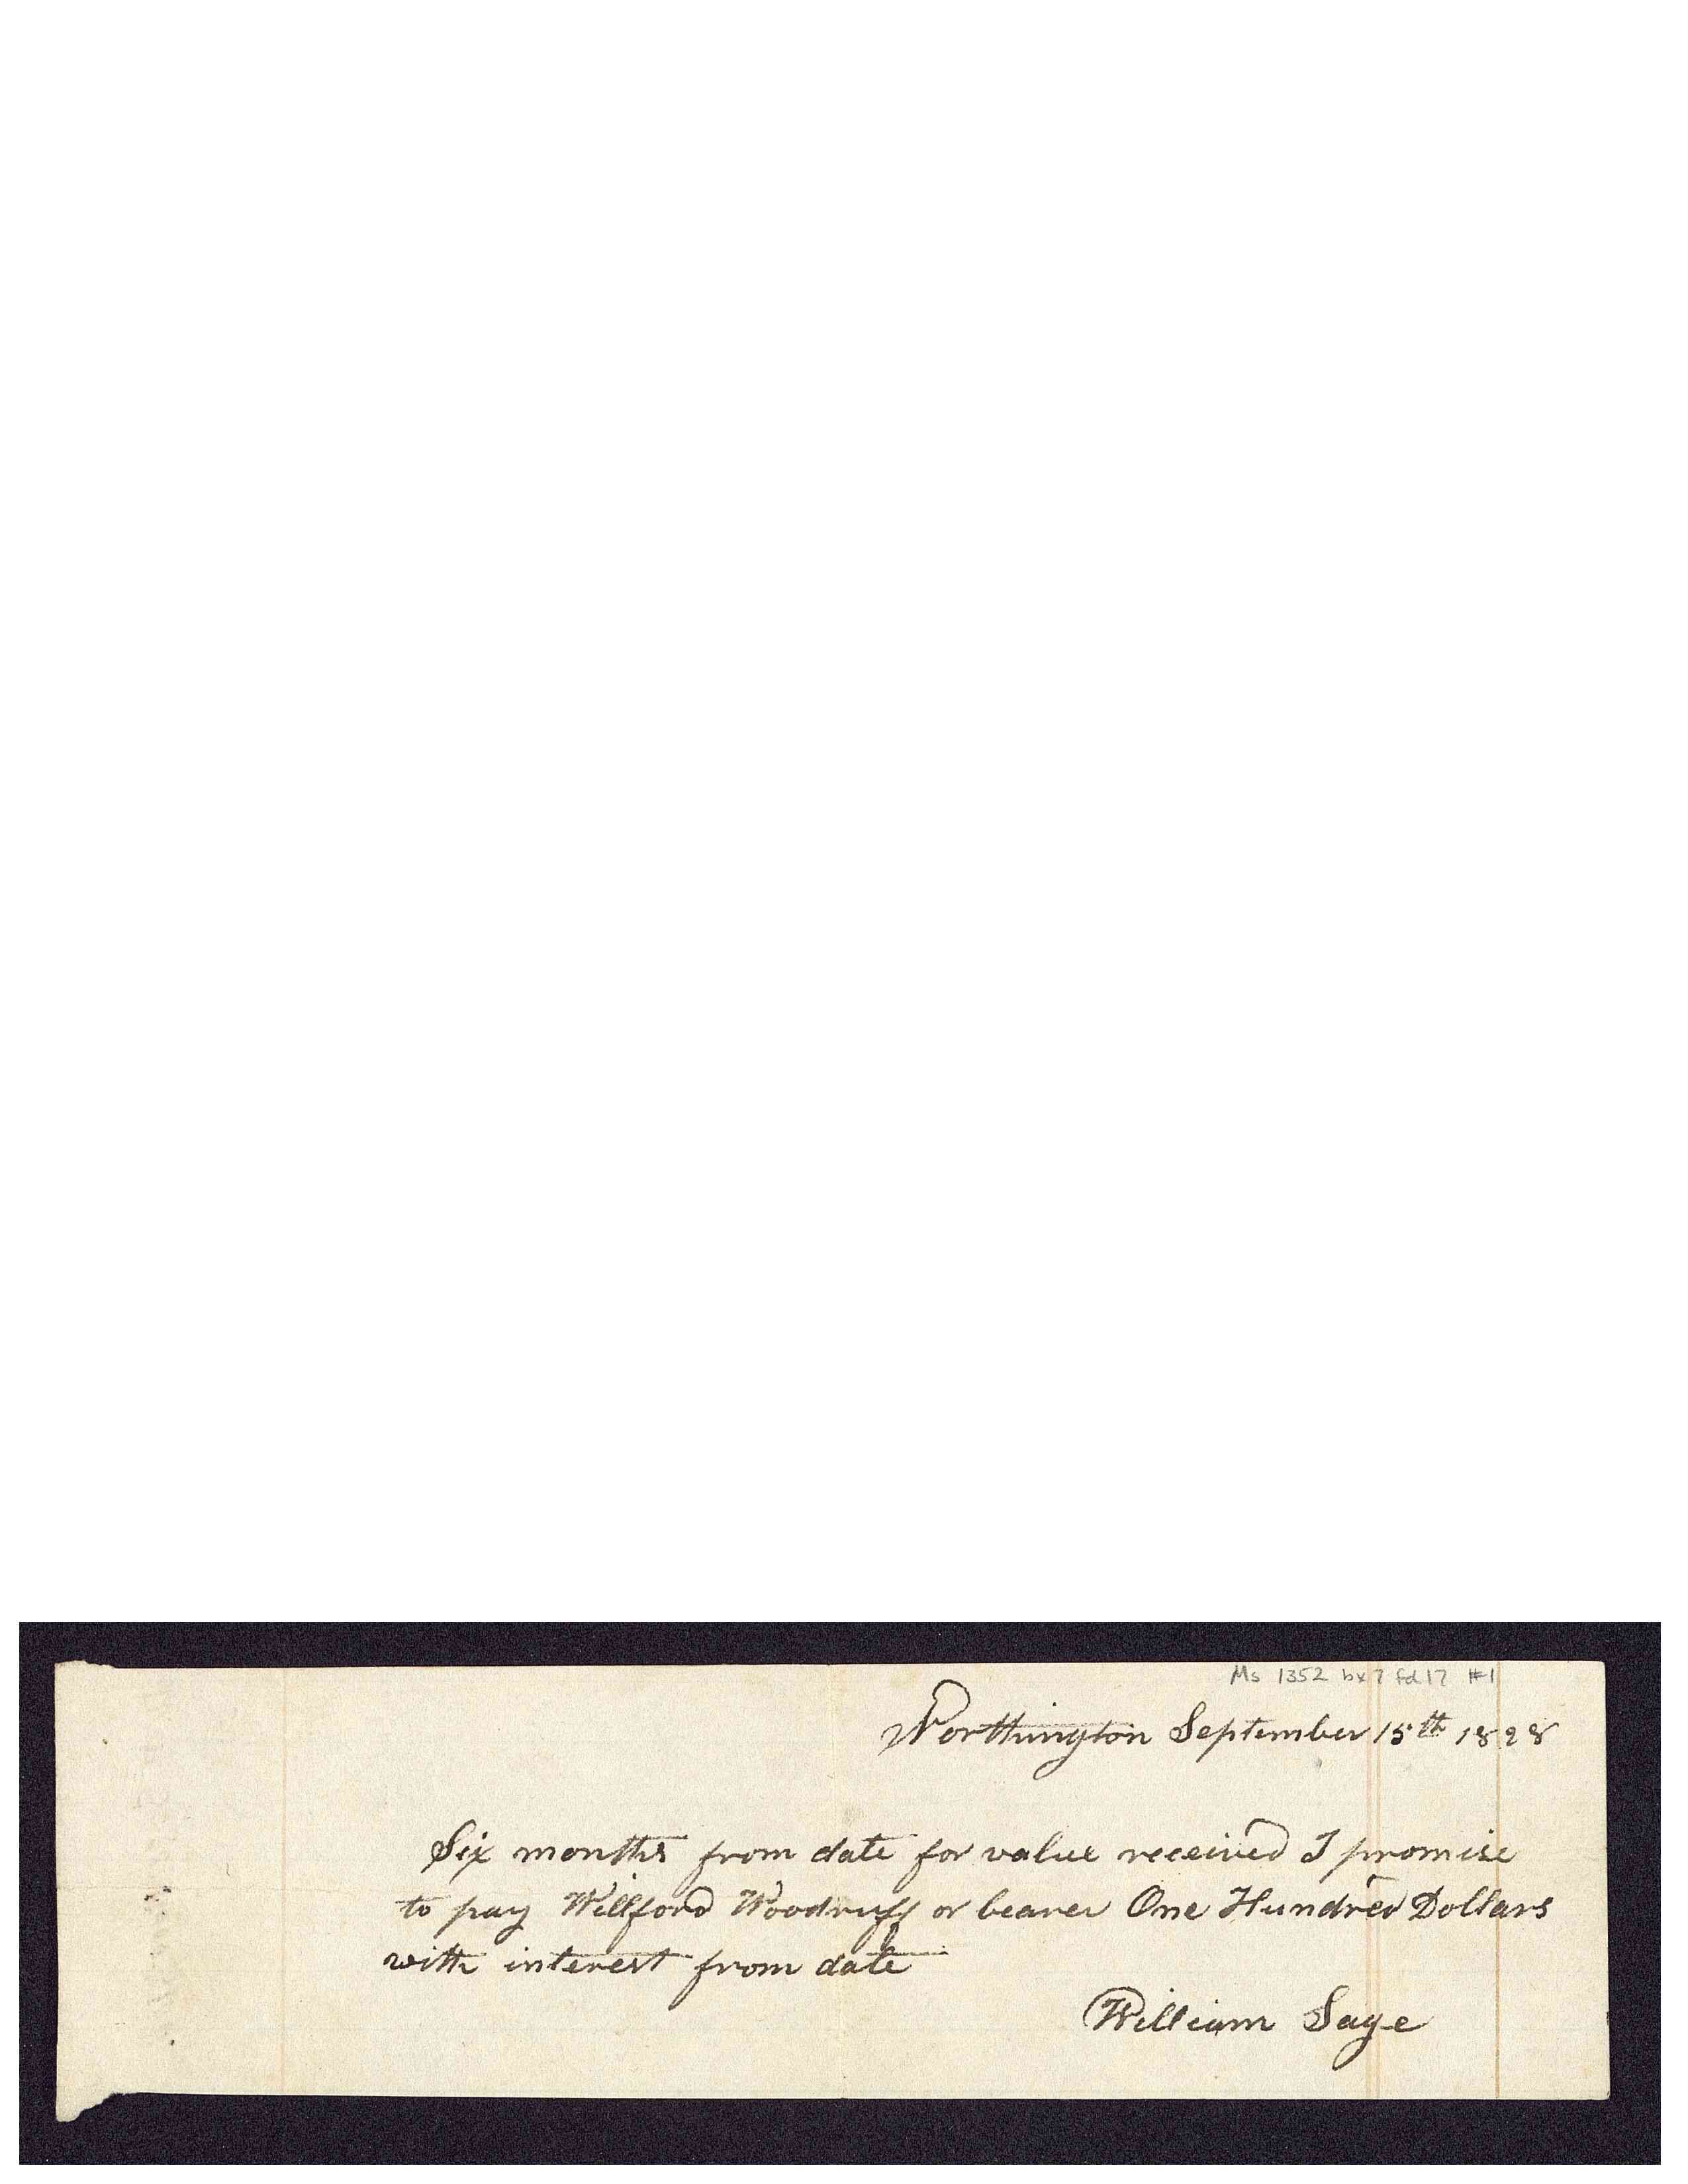 Ms 1352 bx7 fd17 #1
Worthington September 15th 1828
Six months from date for value received I promise
to pay Willford Woodruff or bearer One Hundred Dollars
with interest from date
William Sage